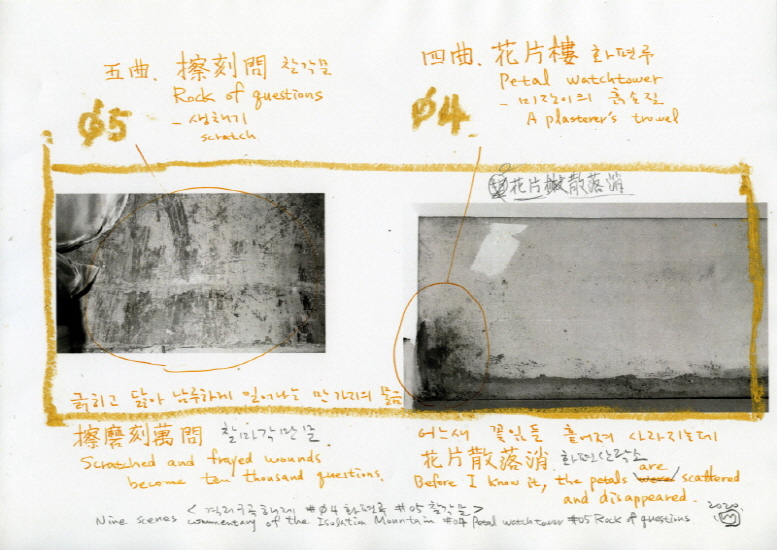 五曲. 擦刻問 찰각문
Rock of questions
– 생채기
scratch
#05
四曲. 花片樓 화편루
Petal watchtower
– 미장이의 흙손질
A plasterer's trowel
#04
花片 散落消
긁히고 닳아 남루하게 일어나는 만 가지의 물음
擦磨刻萬問 찰마각만문.
Scratched and frayed wounds
become ten thousand questions.
어느새 꽃잎들 흩어져 사라지는데
花片散落消. 화편산락소
Before I know it, the petals were are scattered
and disappeared.
<격리구곡해제 #04 화편루 #05 찰각문>
Nine scenes commentary of the Isolation Mountain #04 Petal watchtower #05 Rock of questions
2020